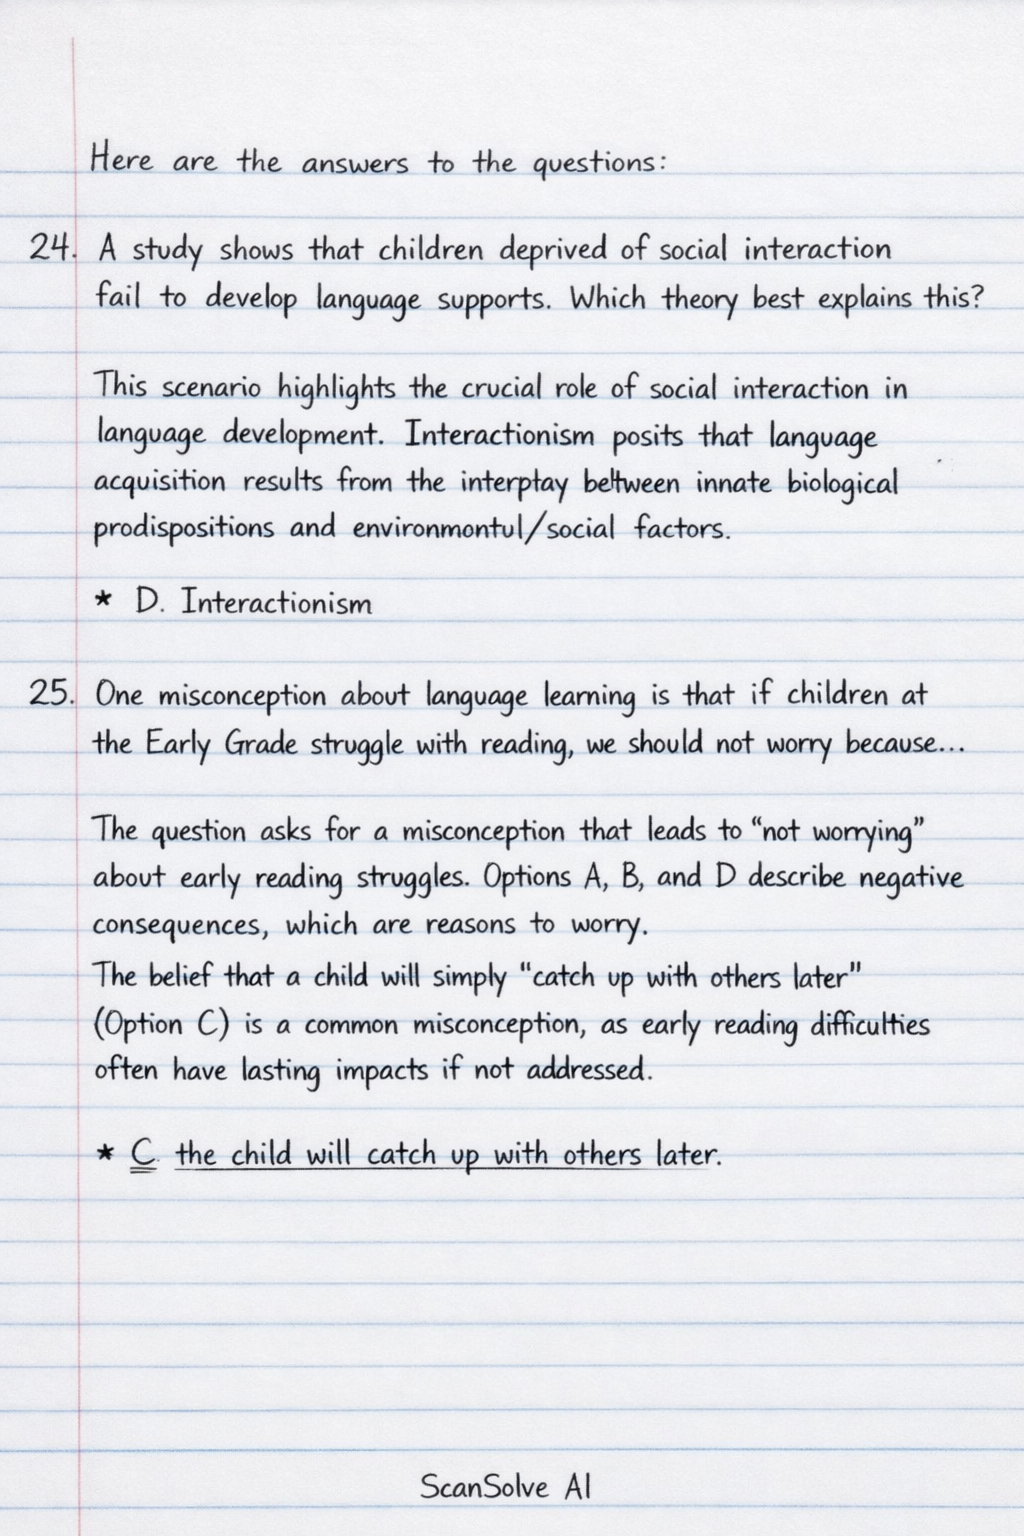 Here are the answers to the questions:
24. A study shows that children deprived of social interaction
fail to develop language supports. Which theory best explains this?
This scenario highlights the crucial role of social interaction in
language development. Interactionism posits that language
acquisition results from the interptay beltween innate biological
prodispositions and environmontul/social factors.
* D. Interactionism
25. One misconception about language learning is that if children at
the Early Grade struggle with reading, we should not worry because...
The question asks for a misconception that leads to "not worrying"
about early reading struggles. Options A, B, and D describe negative
consequences, which are reasons to worry.
The belief that a child will simply "catch up with others later"
(Option C) is a common misconception, as early reading difficulties
often have lasting impacts if not addressed.
* C. the child will catch up with others later.
ScanSolve AI